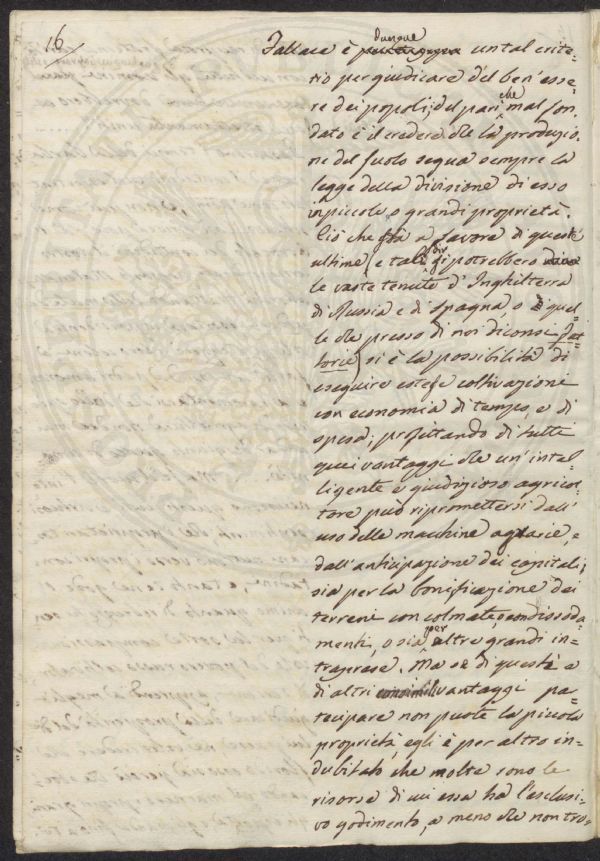 16
dunque
Fallace è un tal crite=
rio per giudicare del ben'esse=
re dei popoli; del pari che mal fon=
dato è il credere che la produzio=
ne del suolo segua sempre la
legge della divisione di esso
in piccole o grandi proprietà.
Ciò che stà a favore di queste
ultime (e tali dir si potrebbero
le vaste tenute d'Inghilterra
di Russia e di Spagna, o quel=
le che presso di noi diconsi fat=
torie) si è la possibilità di
eseguire estese coltivazioni
con economia di tempo, e di
spesa; profittando di tutti
quei vantaggi che un'intel=
ligente e giudizioso agricol=
tore può ripromettersi dall'
uso delle macchine agrarie, e
dall'anticipazione dei capitali,
sia per la bonificazione dei
terreni con colmate, o con dissoda=
menti, o sia per altre grandi in=
traprese. Ma se di questi e
di altri consimili vantaggi par=
tecipare non puote la piccola
proprietà, egli è per altro in=
dubitato che molte sono le
risorse di cui essa ha l'esclusi=
vo godimento, a meno che non tro=